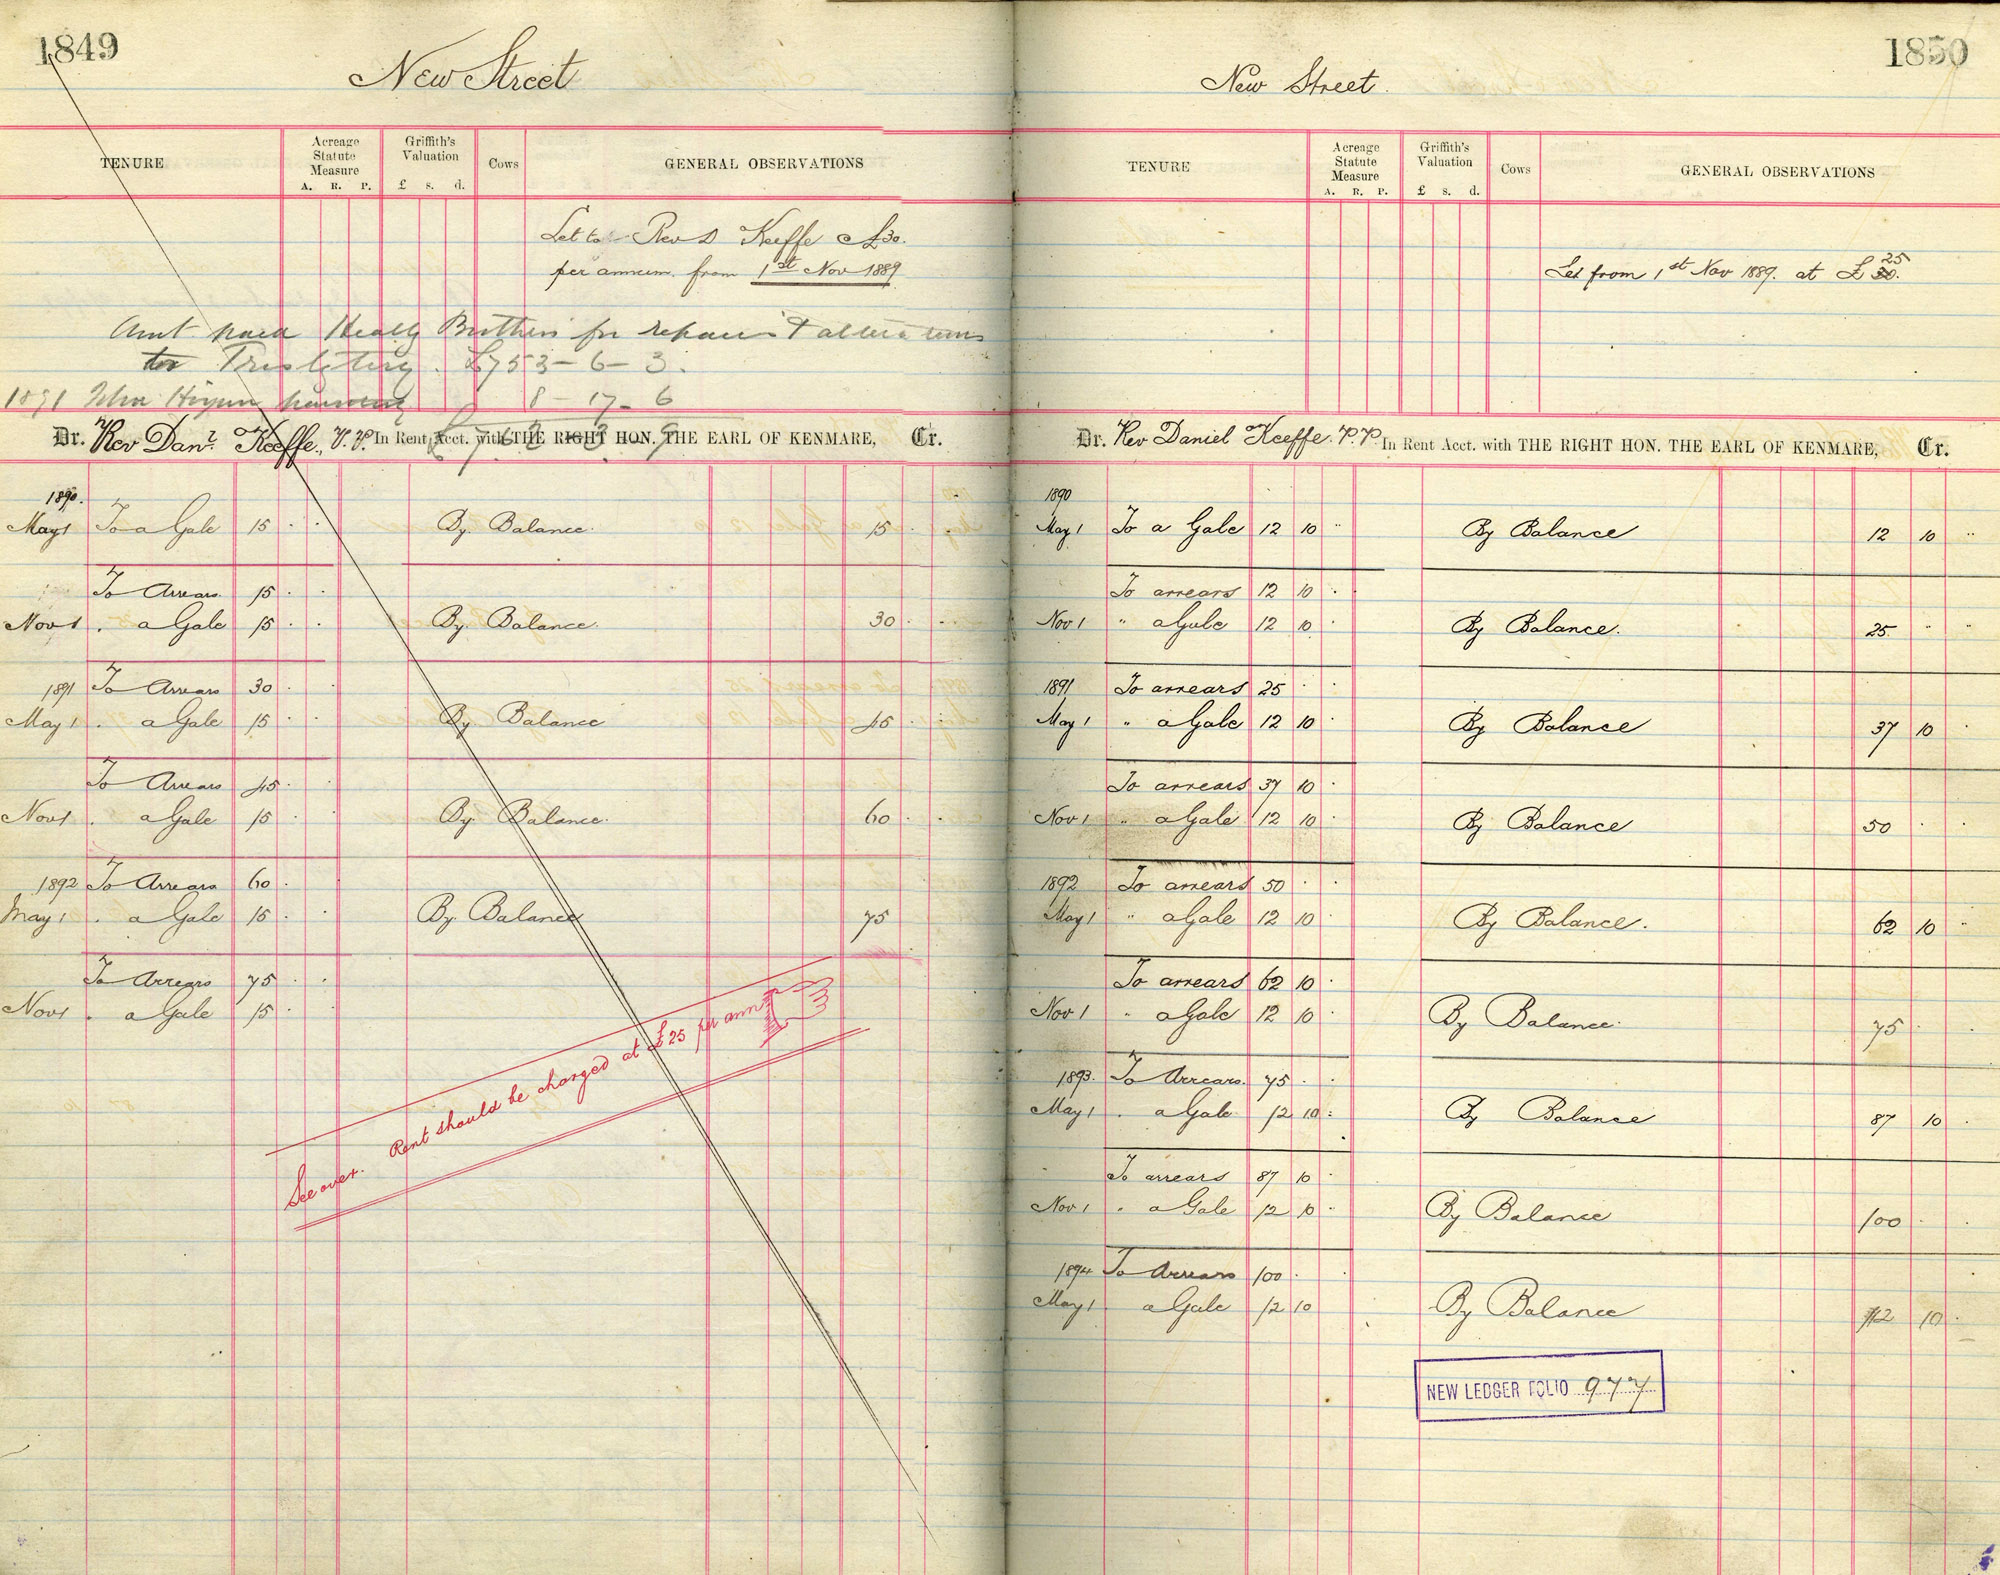 1849
New Street
TENURE
Acreage Statute Measure
A. R. P.
Griffith's Valuation
£ s. d.
Cows
GENERAL OBSERVATIONS
Let to Rev D Keeffe £30.
per annum. from 1st Nov 1889
Amt paid Healy Brothers for repairs & alterations
to Presbytery. £753-6-3.
1891 John 8-17-6
£762-3-9
Dr. Rev Danl Keeffe, P.P. In Rent Acct. with THE RIGHT HON. THE EARL OF KENMARE, Cr.
1890.
May 1 To a Gale 15 . . By Balance. 15 . .
To Arrears 15 . .
Nov 1 . a Gale 15 . . By Balance. 30 . .
1891 To Arrears 30 . .
May 1 . a Gale 15 . . By Balance 45 . .
To Arrears 45 . .
Nov 1 . a Gale 15 . . By Balance. 60 . .
1892 To Arrears 60 .
May 1 . a Gale 15 . . By Balance 75
To Arrears 75 . .
Nov 1 . a Gale 15 . .
See over. Rent should be charged at £25 per ann
1850
New Street.
TENURE
Acreage Statute Measure
A. R. P.
Griffith's Valuation
£ s. d.
Cows
GENERAL OBSERVATIONS
25
Let from 1st Nov 1889. at £ 30.
Dr. Rev Daniel Keeffe. P.P. In Rent Acct. with THE RIGHT HON. THE EARL OF KENMARE, Cr.
1890
May 1 To a Gale 12 10 " By Balance 12 10 "
To arrears 12 10 .
Nov 1 " a Gale 12 10 . By Balance. 25 " "
1891 To arrears 25 . .
May 1 " a Gale 12 10 . By Balance 37 10 .
To arrears 37 10 .
Nov 1 " a Gale 12 10 . By Balance 50 . .
1892 To arrears 50 . .
May 1 " a Gale 12 10 . By Balance. 62 10 .
To arrears 62 10 .
Nov 1 " a Gale 12 10 . By Balance. 75 . .
1893. To Arrears. 75 . .
May 1 . a Gale 12 10 : By Balance 87 10 .
To arrears 87 10 .
Nov 1 . a Gale 12 10 . By Balance 100 . .
1894 To Arrears 100 . .
May 1 a Gale 12 10 By Balance 112 10 .
NEW LEDGER FOLIO 977